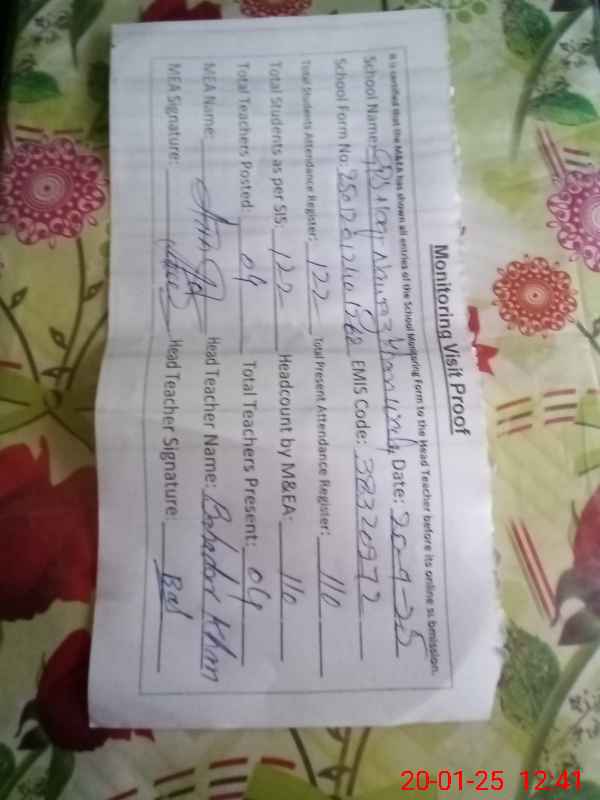 Monitoring Visit Proof
It is certified that the M&EA has shown all entries of the School Monitoring Form to the Head Teacher before its online submission.
School Name: Date: 20-1-25
School Form No: EMIS Code: 38320972
Total Students Attendance Register: 122 Total Present Attendance Register: 110
Total Students as per SIS: 122 Headcount by M&EA: 110
Total Teachers Posted: 04 Total Teachers Present: 04
MEA Name: Head Teacher Name: Bahadur Khan
MEA Signature: Head Teacher Signature:
20-01-25 12:41